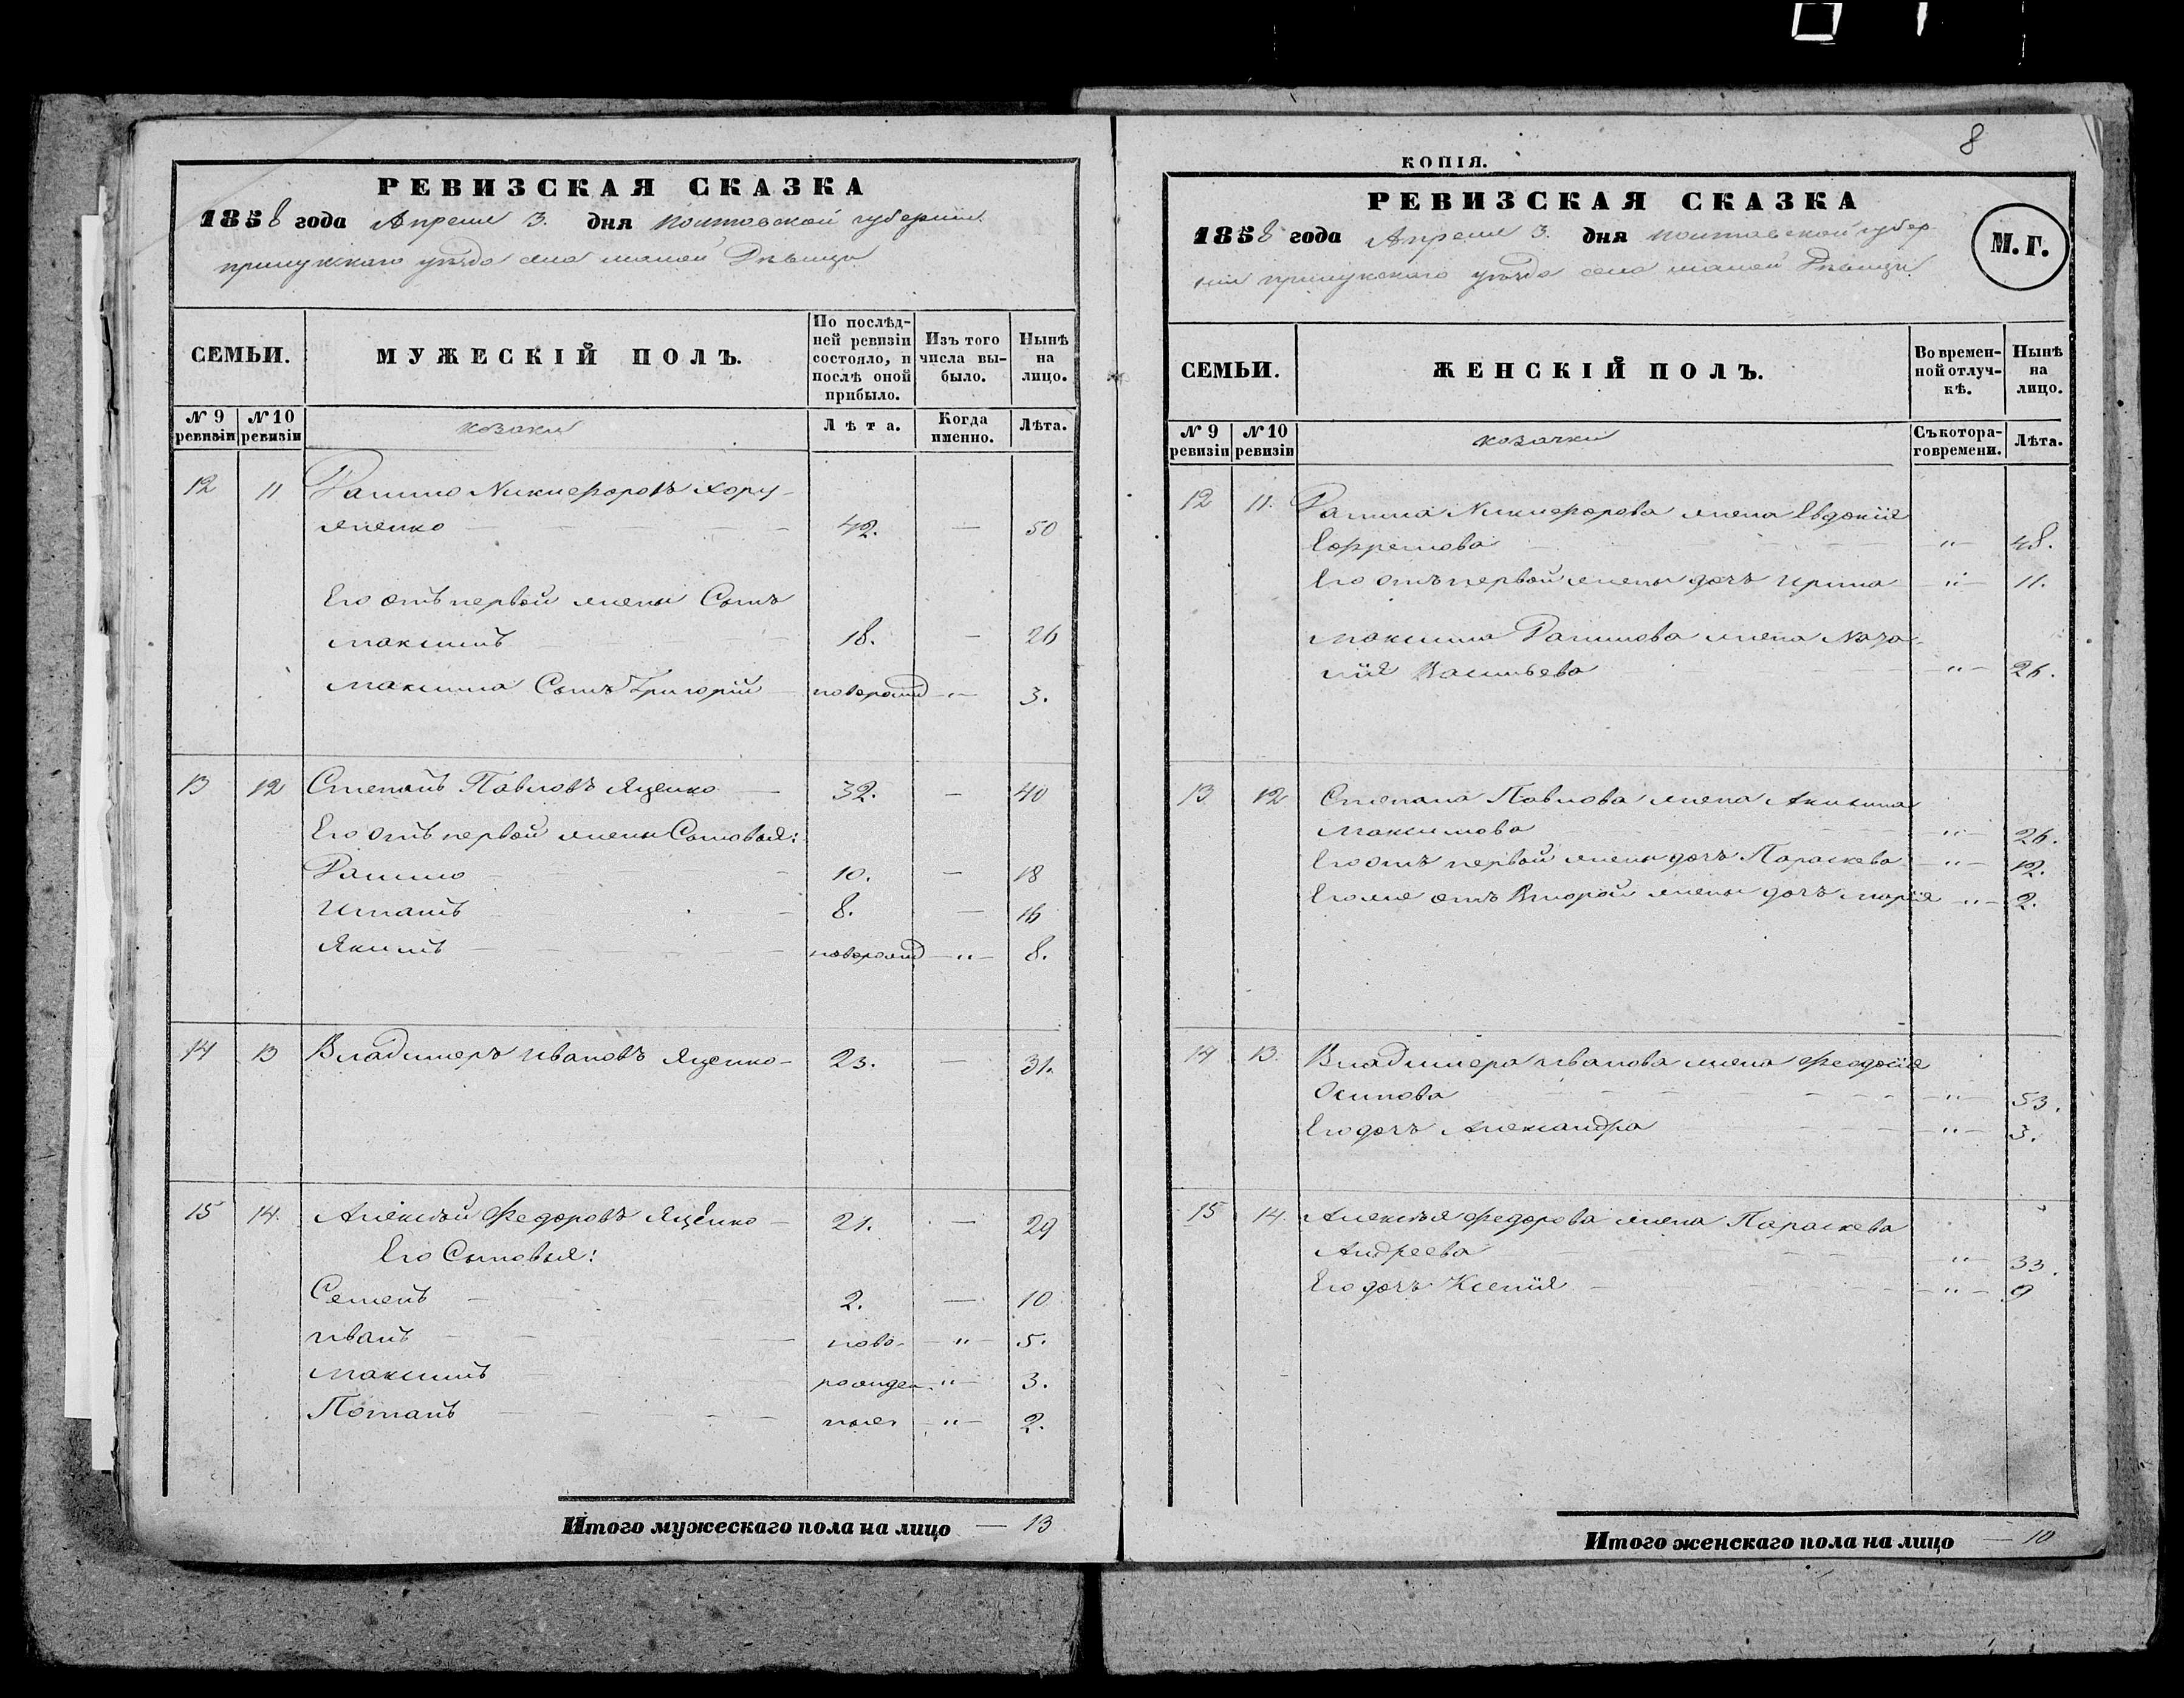 РЕВИЗСКАЯ СКАЗКА
1858 года Апреля 3. дня полтавской губерніи
прилукскаго уѣзда села малой Дѣвицы
СЕМЬИ.
МУЖЕСКІЙ ПОЛЪ.
По послѣд-
ней ревизіи
состояло, и
послѣ оной
прибыло.
Изъ того
числа вы-
было.
Нынѣ
на
лицо.
№ 9 ревизіи
№ 10 ревизіи
козаки
Лѣта.
Когда
именно.
Лѣта.
12 11 Никифоровъ Хору-
женко 42. — 50
Его отъ первой жены Сынъ
Максимъ 18. — 26
Максима Сынъ Григорій новорожд — " — 3.
13 12 Степанъ Павловъ Яценко 32. — 40
Его отъ первой жены Сыновья:
10. — 18
8. — 16
Якимъ новорожд — " — 8.
14 13 Владимеръ Ивановъ Яценко — 23. — 31.
15 14. Алексѣй Федоровъ Яценко — 21. — 29
Его Сыновья:
Семенъ 2. — 10
Иванъ ново- — " — 5.
Максимъ рожден " — 3.
Потапъ ные — " — 2.
Итого мужескаго пола на лицо — 13
8
КОПІЯ.
РЕВИЗСКАЯ СКАЗКА
1858 года Апреля 3. дня полтавской губер-
ніи прилукскаго уѣзда села малой Дѣвицы
М. Г.
СЕМЬИ.
ЖЕНСКІЙ ПОЛЪ.
Во времен-
ной отлуч-
кѣ.
Нынѣ
на
лицо.
№ 9 ревизіи
№ 10 ревизіи
козачки
Съ котора-
го времени.
Лѣта.
12 11. Никифорова жена Евдокія
Ефремова — " — 48.
Его отъ первой жены дочь Ирина — " — 11.
Максима жена Ната-
лія Васильева — " — 26.
13 12 Степана Павлова жена Акилина
Максимова — " — 26.
Его отъ первой жены дочь Параскева — " — 12.
Его же отъ Второй жены дочь Марія — " — 2.
14 13. Владимера Иванова жена Феодосія
Осипова — " — 53.
Его дочь Александра — " — 3.
15 14. Алексѣя Федорова жена Параскева
Андреева — " — 33.
Его дочь Ксенія — " — 9
Итого женскаго пола на лицо — 10